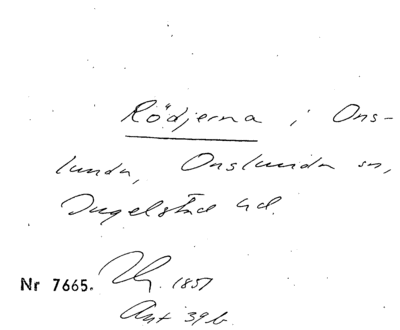 Rödjerna i Ons-
lunda, Onslunda sn,
Ingelstad hd.
Nr 7665. 1857
Ant 39 b.